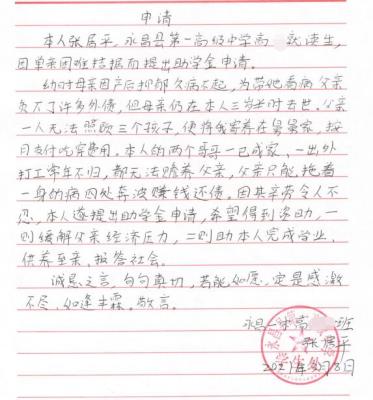 申请
本人张居平，永昌县第一高级中学高 就读生，
因单亲困难拮据而提出助学金申请。
幼时母亲因产后抑郁久病不起，为带她看病父亲
负下许多外债，但母亲仍在本人三岁时去世。父亲
一人无法照顾三个孩子，便将我寄养在舅舅家，按
月支付吃穿费用。本人的两个哥哥一已成家、一出外
打工常年不归，都无法赡养父亲，父亲只能拖着
一身的病四处奔波赚钱还债。因其辛劳令人不
忍，本人遂提出助学金申请，希望得到资助，一
则缓解父亲经济压力，二则助本人完成学业、
供养至亲、报答社会。
诚恳之言，句句真切，若能如愿，定是感激
不尽，如逢丰霖。敬言。
永昌一中高 班
张居平
2021年 月8日
学生处